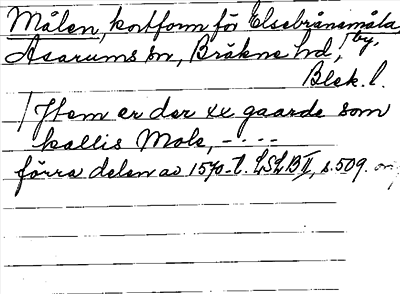 Målen, kortform för Elsebrånemåla,
Asarums sn, Bräkne hd, by,
Blek. l.
/ Jtem er der xx gaarde som
kallis Mole, – – – –
förra delen av 1570-t. LSLB II, s. 509.